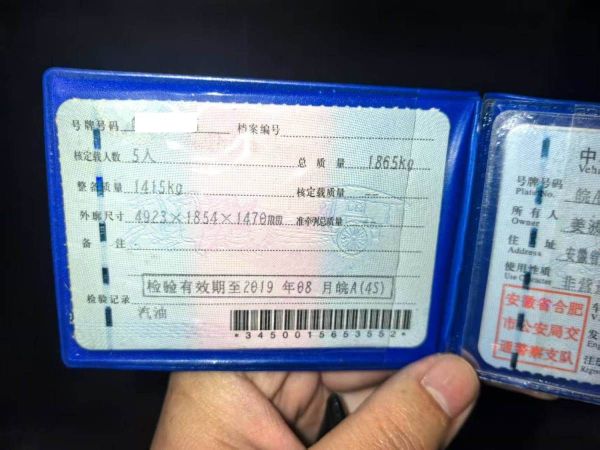 号牌号码
档案编号
核定载人数 5人
总质量 1865kg
整备质量 1415kg
核定载质量
外廓尺寸 4923×1854×1470mm
准牵引总质量
备注
检验有效期至2019年08月皖A(4S)
检验记录
汽油
*3450015653552*
中
Vehi
号牌号码
Plate No.
皖A
所有人
Owner
姜波
住址
Address
安徽省
使用性质
Use Character
非营
安徽省合肥
市公安局交
通警察支队
发
Engi
注册
Regist